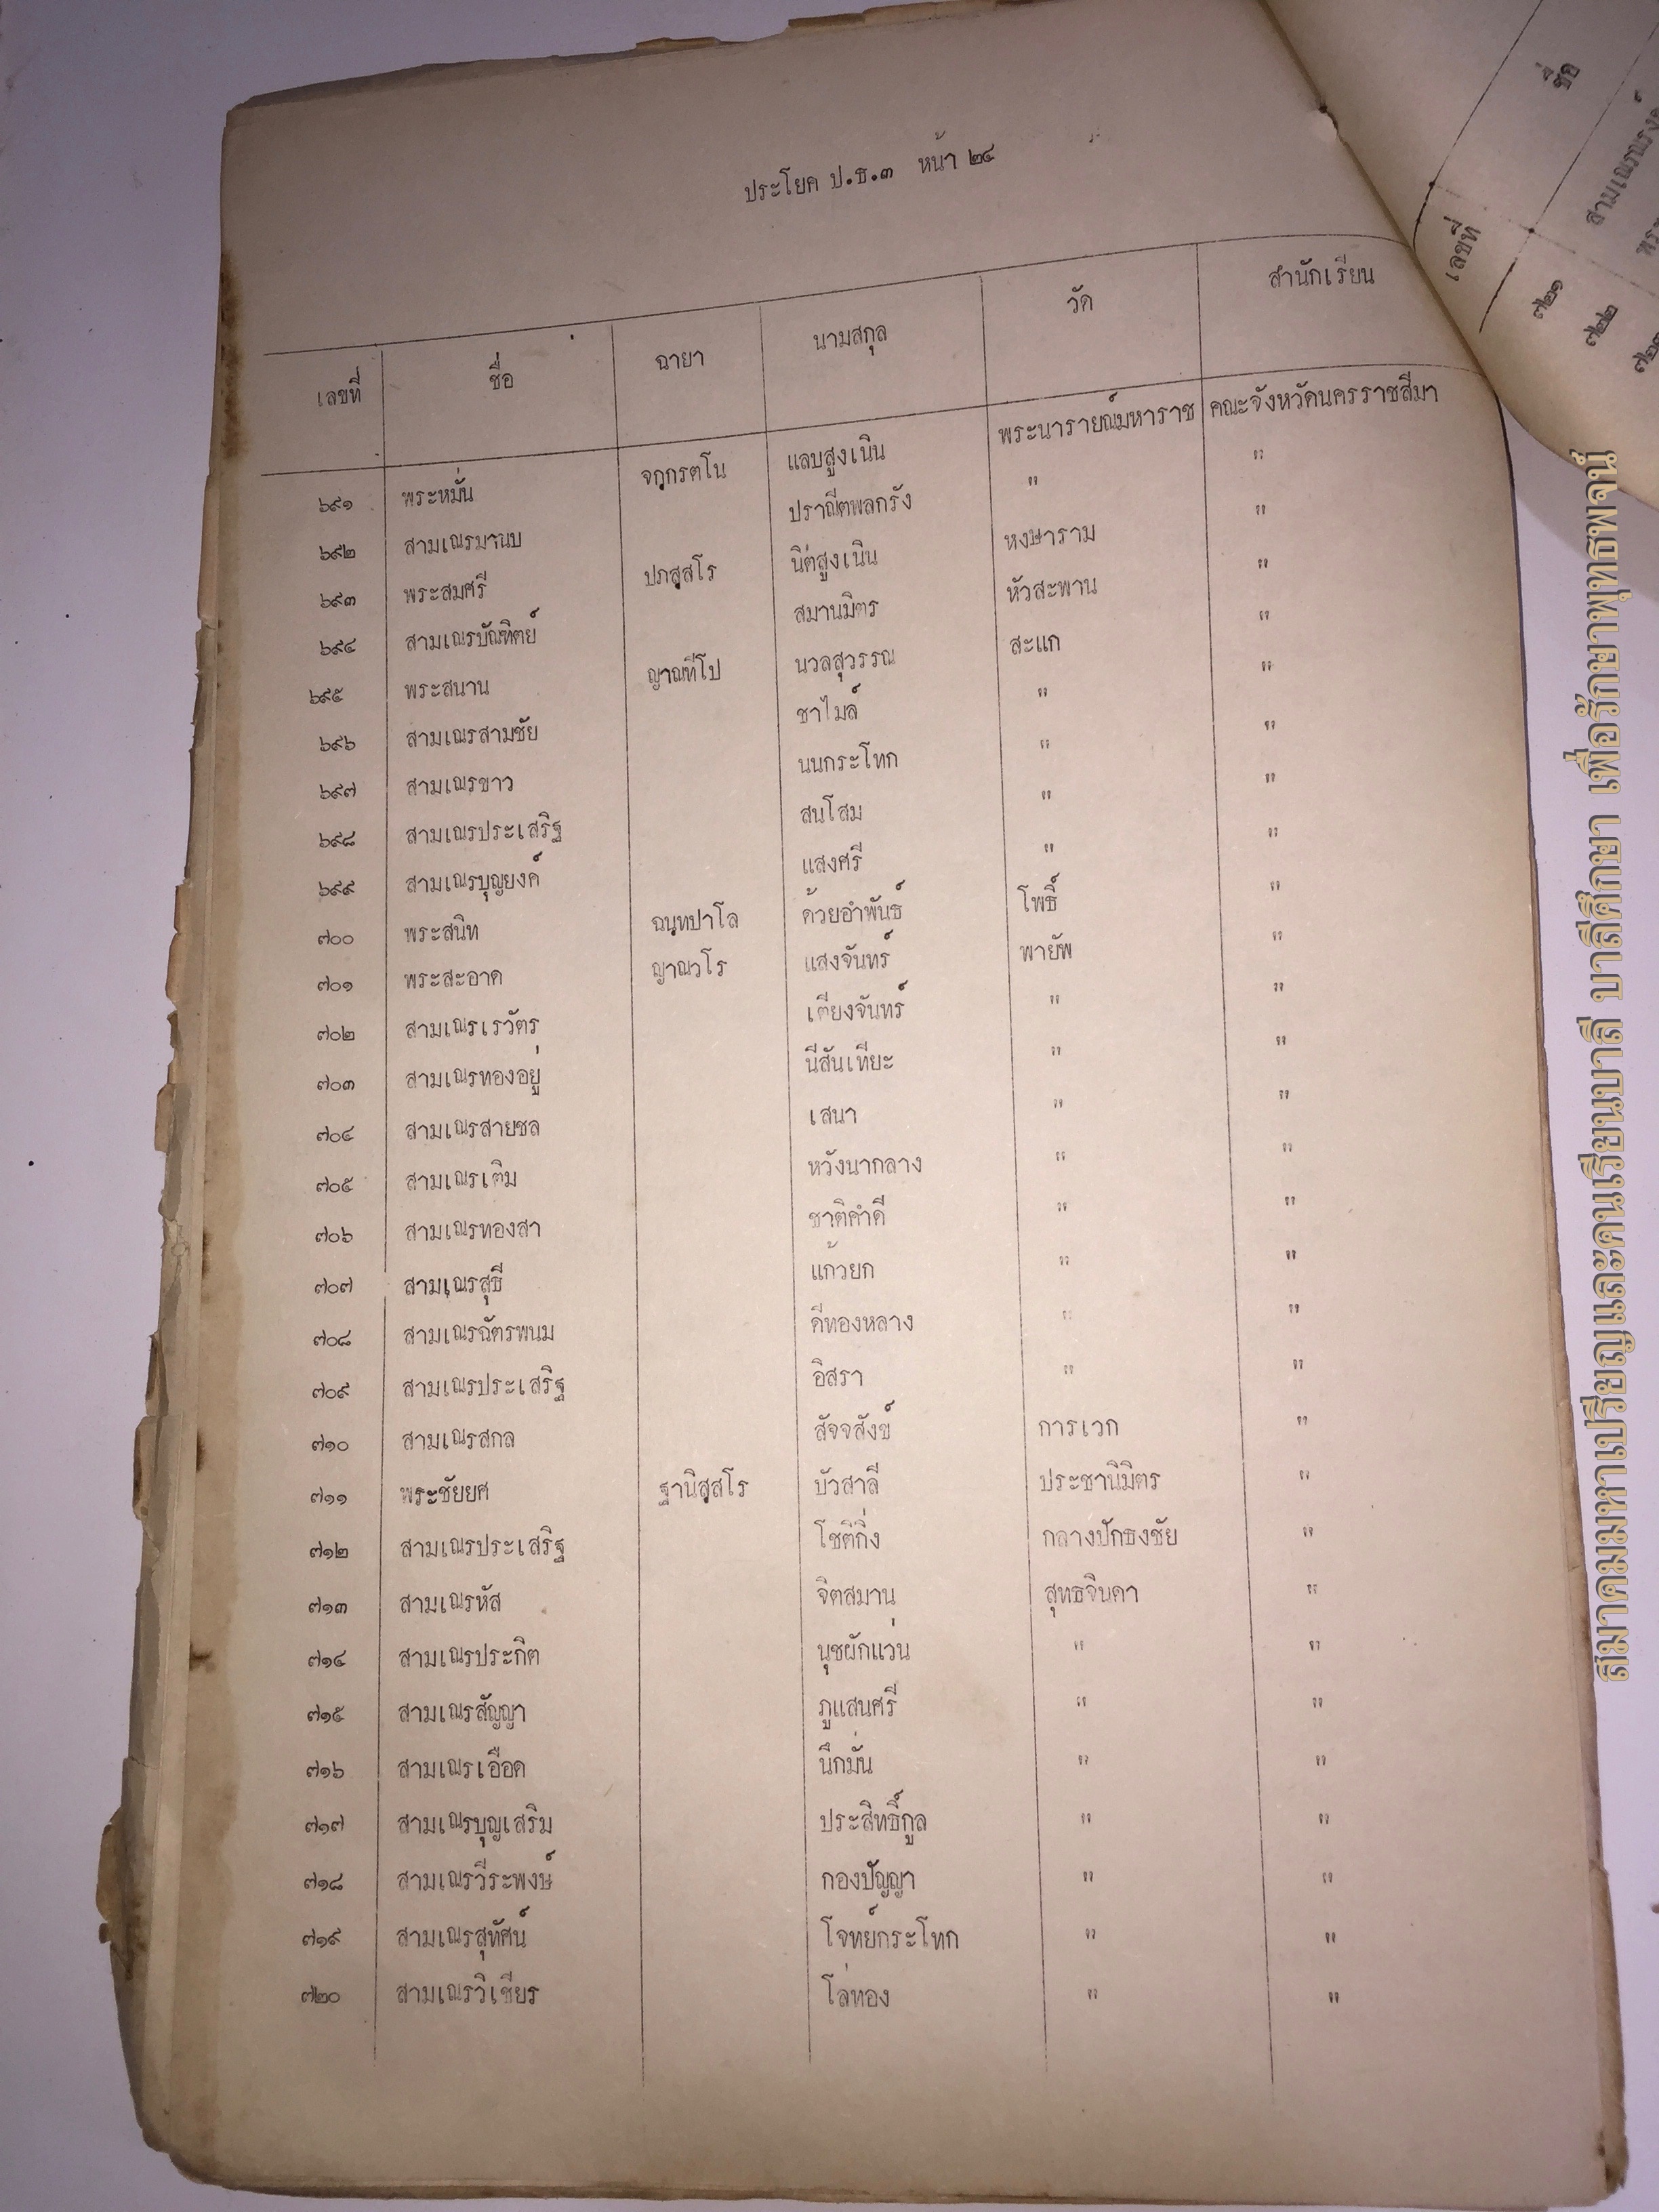 ประโยค ป.ธ.๓ หน้า ๒๔
เลขที่ ชื่อ ฉายา นามสกุล วัด สำนักเรียน
๖๙๑ พระหมั่น จกฺกรตโน แลบสูงเนิน พระนารายณ์มหาราช คณะจังหวัดนครราชสีมา
๖๙๒ สามเณรมานบ ปราณีตพลกรัง " "
๖๙๓ พระสมศรี ปภสฺสโร นิต่สูงเนิน หงษาราม "
๖๙๔ สามเณรบัณฑิตย์ สมานมิตร หัวสะพาน "
๖๙๕ พระสนาน ญาณทีโป นวลสุวรรณ สะแก "
๖๙๖ สามเณรสามชัย ชาไมล์ " "
๖๙๗ สามเณรขาว นนกระโทก " "
๖๙๘ สามเณรประเสริฐ สนโสม " "
๖๙๙ สามเณรบุญยงค์ แสงศรี " "
๗๐๐ พระสนิท ฉนฺทปาโล ด้วยอำพันธ์ โพธิ์ "
๗๐๑ พระสะอาด ญาณวโร แสงจันทร์ พายัพ "
๗๐๒ สามเณรเรวัตร เตียงจันทร์ " "
๗๐๓ สามเณรทองอยู่ นีสันเทียะ " "
๗๐๔ สามเณรสายชล เสนา " "
๗๐๕ สามเณรเติม หวังนากลาง " "
๗๐๖ สามเณรทองสา ชาติคำดี " "
๗๐๗ สามเณรสุธี แก้วยก " "
๗๐๘ สามเณรฉัตรพนม ดีทองหลาง " "
๗๐๙ สามเณรประเสริฐ อิสรา " "
๗๑๐ สามเณรสกล สัจจสังข์ การเวก "
๗๑๑ พระชัยยศ ฐานิสฺสโร บัวสาลี ประชานิมิตร "
๗๑๒ สามเณรประเสริฐ โชติกิ่ง กลางปักธงชัย "
๗๑๓ สามเณรหัส จิตสมาน สุทธจินดา "
๗๑๔ สามเณรประกิต นุชผักแว่น " "
๗๑๕ สามเณรสัญญา ภูแสนศรี " "
๗๑๖ สามเณรเอือด นึกมั่น " "
๗๑๗ สามเณรบุญเสริม ประสิทธิ์กูล " "
๗๑๘ สามเณรวีระพงษ์ กองปัญญา " "
๗๑๙ สามเณรสุทัศน์ โจทย์กระโทก " "
๗๒๐ สามเณรวิเชียร โล่ทอง " "
เลขที่ ชื่อ
๗๒๑ สามเณรณรงค์
๗๒๒
สมาคมมหาเปรียญและคนเรียนบาลี บาลีศึกษา เพื่อรักษาพุทธพจน์